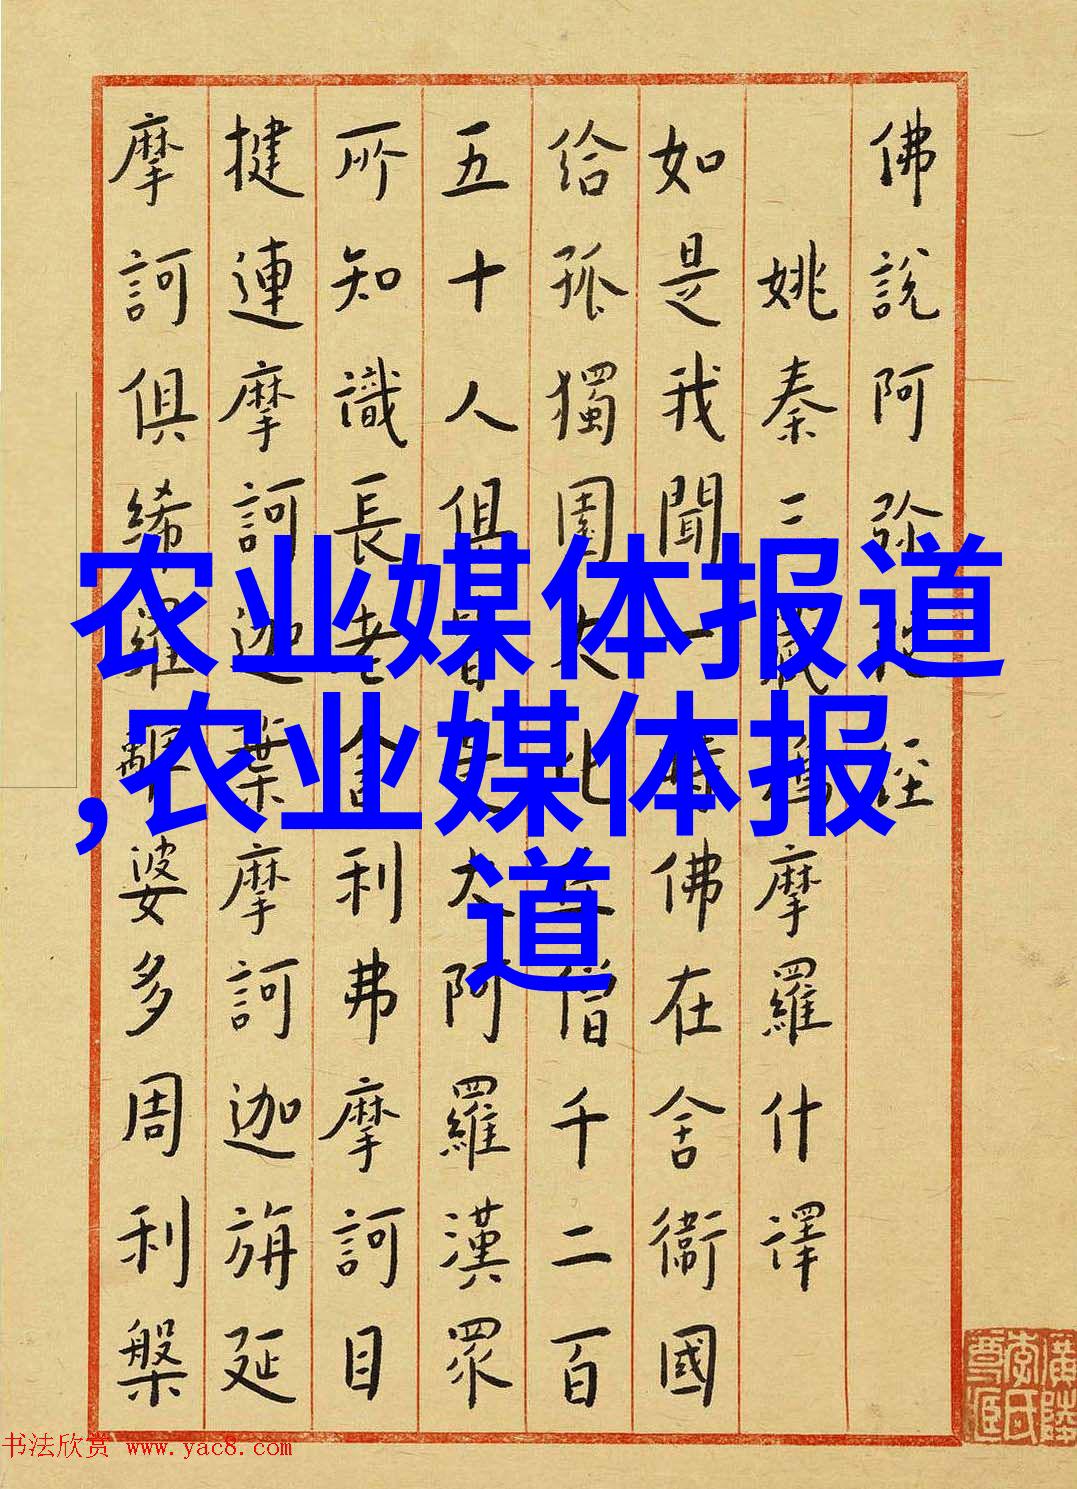 佛說阿弥陀經
姚秦三藏鳩摩羅什譯
如是我聞一時佛在舍衞國
給孤獨園大比丘僧千二百
五十人俱皆是大阿羅漢眾
所知識長老舍利弗摩訶目
揵連摩訶迦葉摩訶迦旃延
摩訶俱絺羅離婆多周利槃
农业媒体报道
,农业媒体报
道
书法欣赏 www.yac8.com